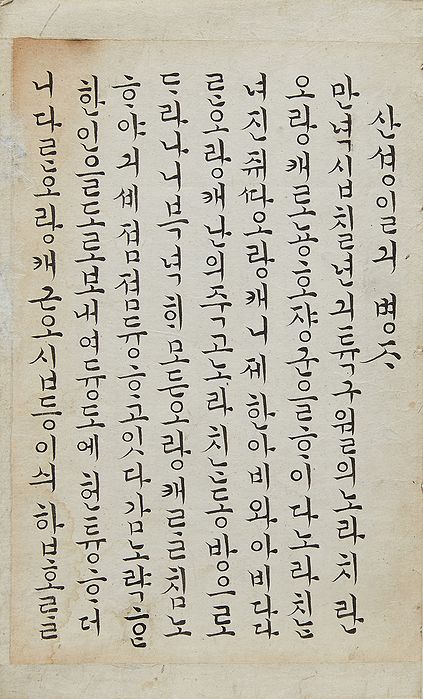 산셩일긔 병ᄌᆞ
만녁십칠년긔튝구월의노라치란
오랑캐로뇽호쟝군을ᄒᆞ이다노라치ᄂᆞᆫ
녀진쥐ᄯᅡ오랑캐니제한아비와아비다다
ᄅᆞᆫ오랑캐난의죽고노라치ᄂᆞᆫ동방으로
ᄃᆞ라나니북녁희모든오랑캐ᄅᆞᆯ침노
ᄒᆞ야긔셰졈졈듕ᄒᆞ고잇다감노략ᄒᆞᆫ
한인을도로보내여듕도에헌튱ᄒᆞ더
니다ᄅᆞᆫ오랑캐근오십등이싀합호ᄅᆞᆯ